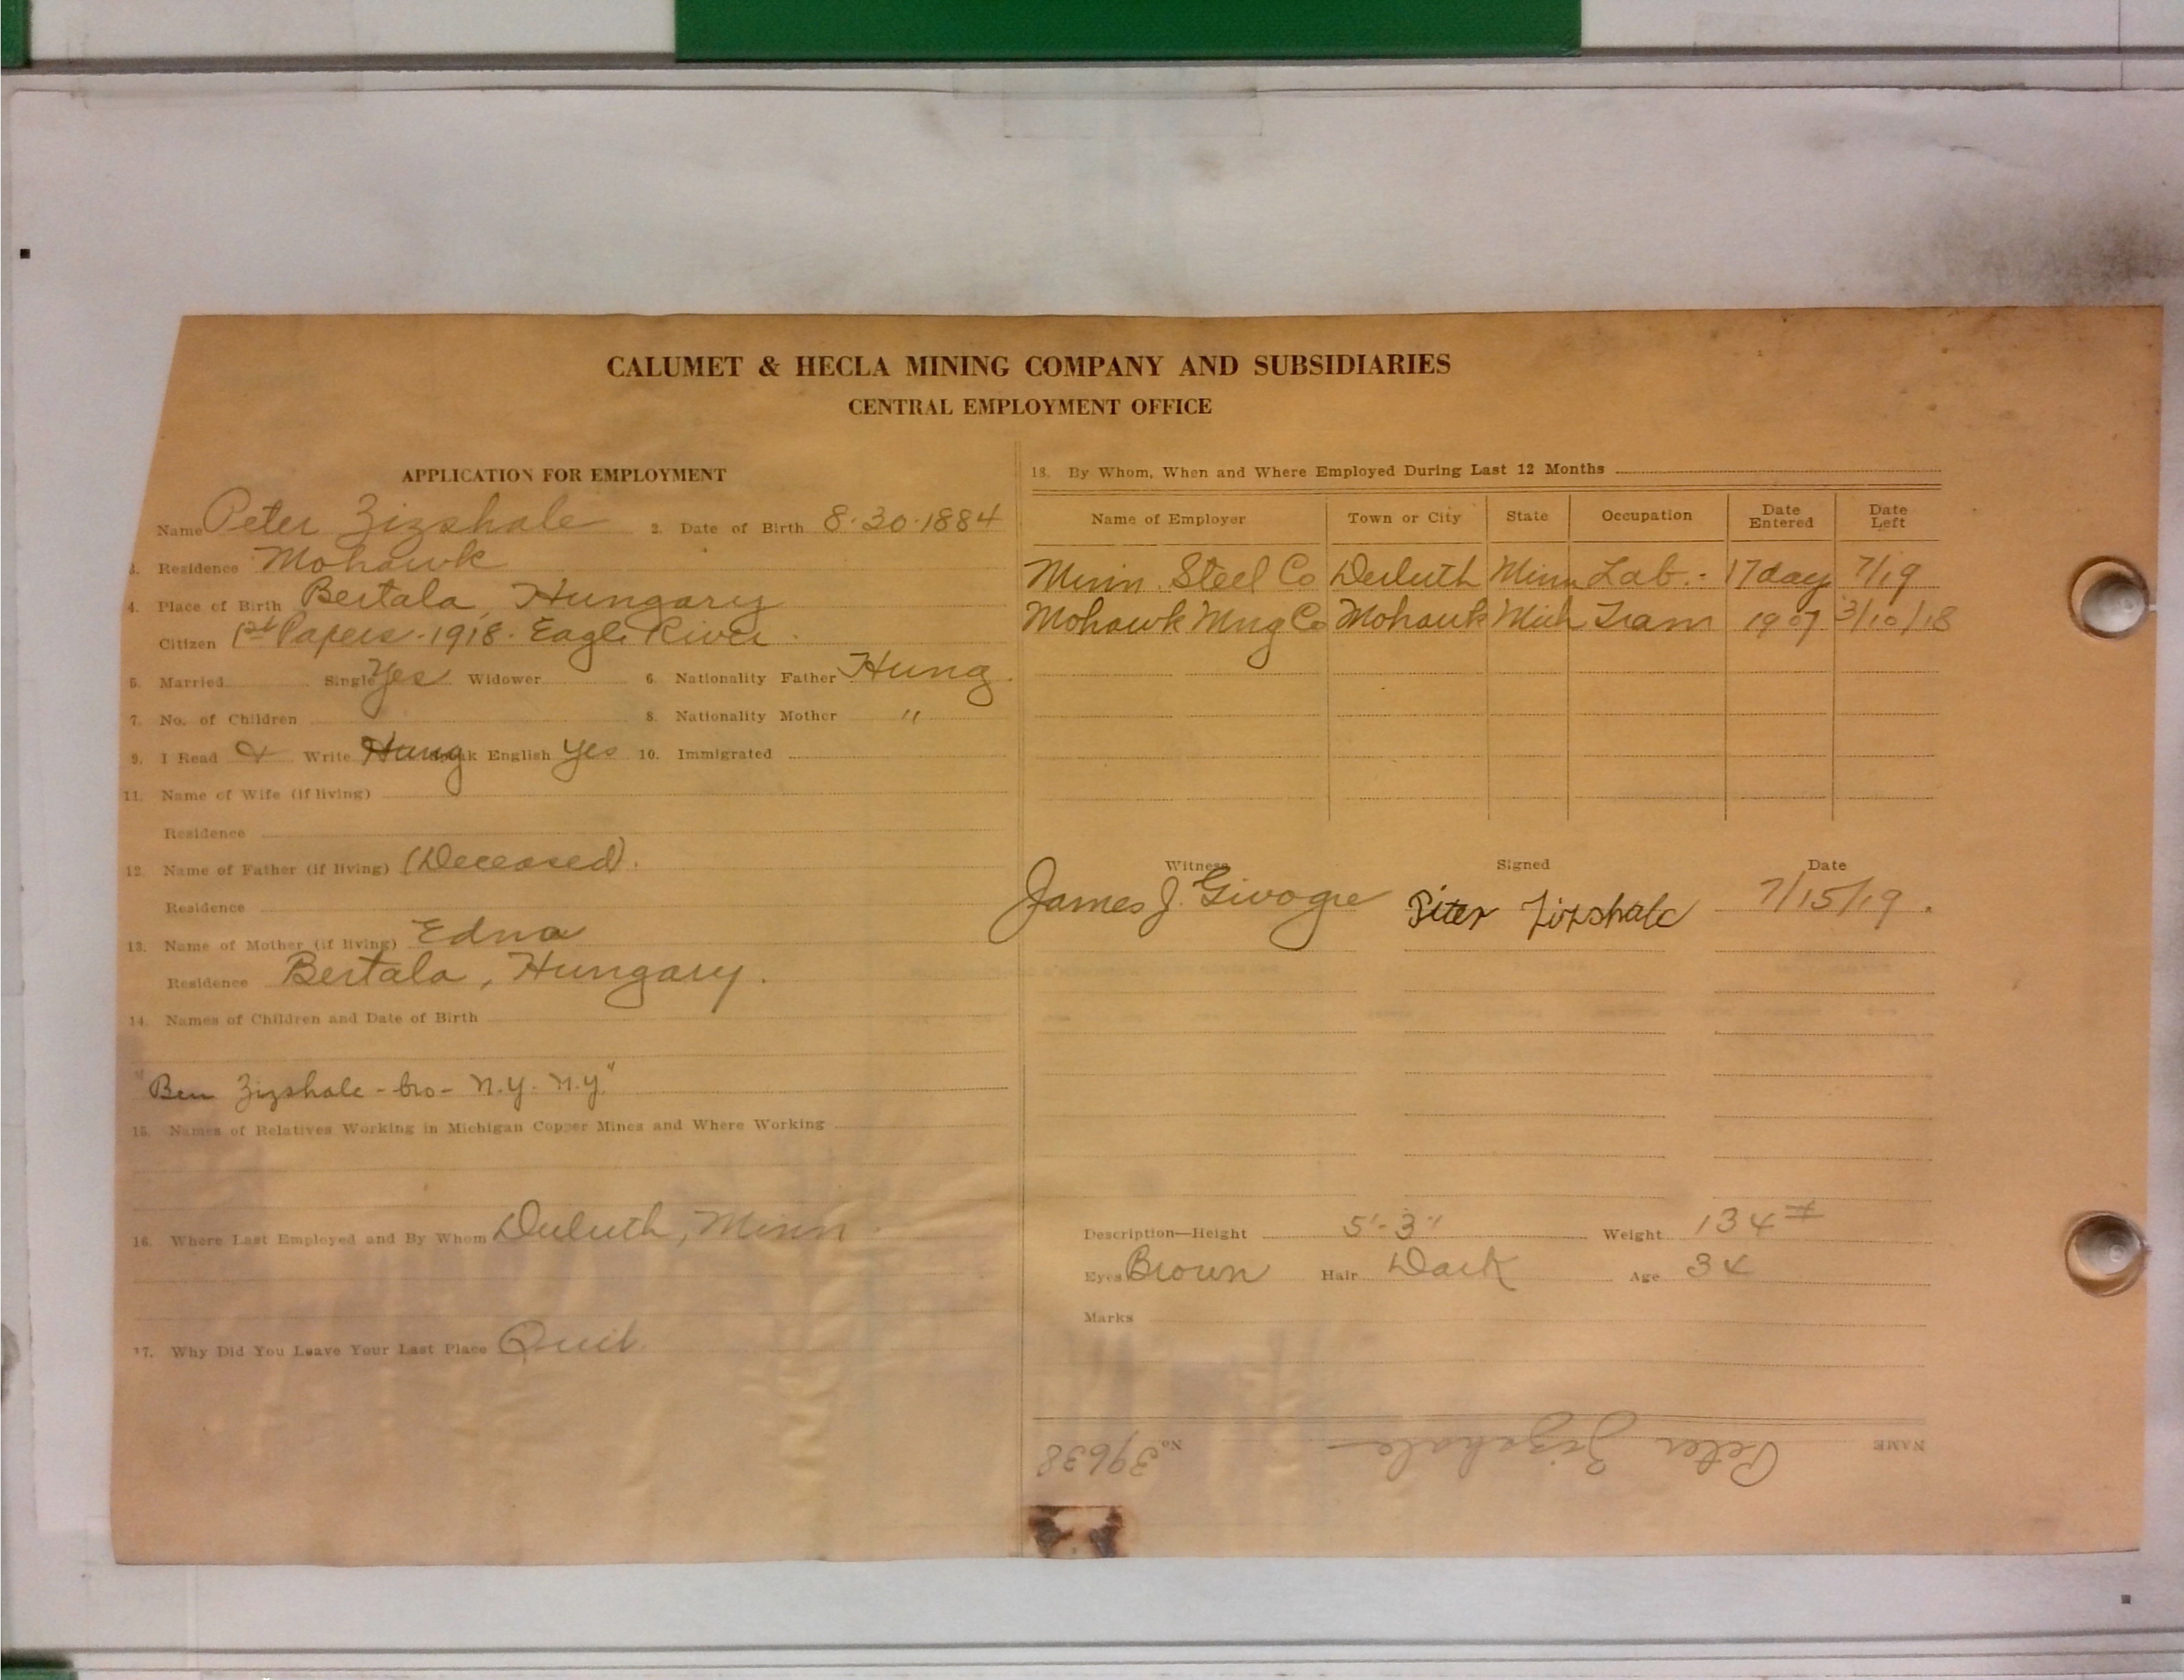 CALUMET & HECLA MINING COMPANY AND SUBSIDIARIES
CENTRAL EMPLOYMENT OFFICE
APPLICATION FOR EMPLOYMENT
Name Peter Zizshale 2. Date of Birth 8-30-1884
3. Residence Mohawk
4. Place of Birth Bertala, Hungary
Citizen 1st Papers - 1918 - Eagle River
5. Married Single Yes Widower 6. Nationality Father Hung.
7. No. of Children 8. Nationality Mother "
9. I Read & Write Hung Speak English Yes 10. Immigrated
11. Name of Wife (if living)
Residence
12. Name of Father (if living) (Deceased).
Residence
13. Name of Mother (if living) Edna
Residence Bertala, Hungary.
14. Names of Children and Date of Birth
"Ben Zizshale - bro - N.Y. N.Y."
15. Names of Relatives Working in Michigan Copper Mines and Where Working
16. Where Last Employed and By Whom Duluth, Minn.
17. Why Did You Leave Your Last Place Quit
18. By Whom, When and Where Employed During Last 12 Months
Name of Employer Town or City State Occupation Date Entered Date Left
Minn. Steel Co Duluth Minn Lab. - 17 day 7/19
Mohawk Mng Co Mohawk Mich Tram 1907 3/10/18
Witness Signed Date
James J. Peter Zizshale 7/15/19.
Description—Height 5'-3" Weight 134#
Eyes Brown Hair Dark Age 34
Marks
NAME Peter Zizshale No. 39638